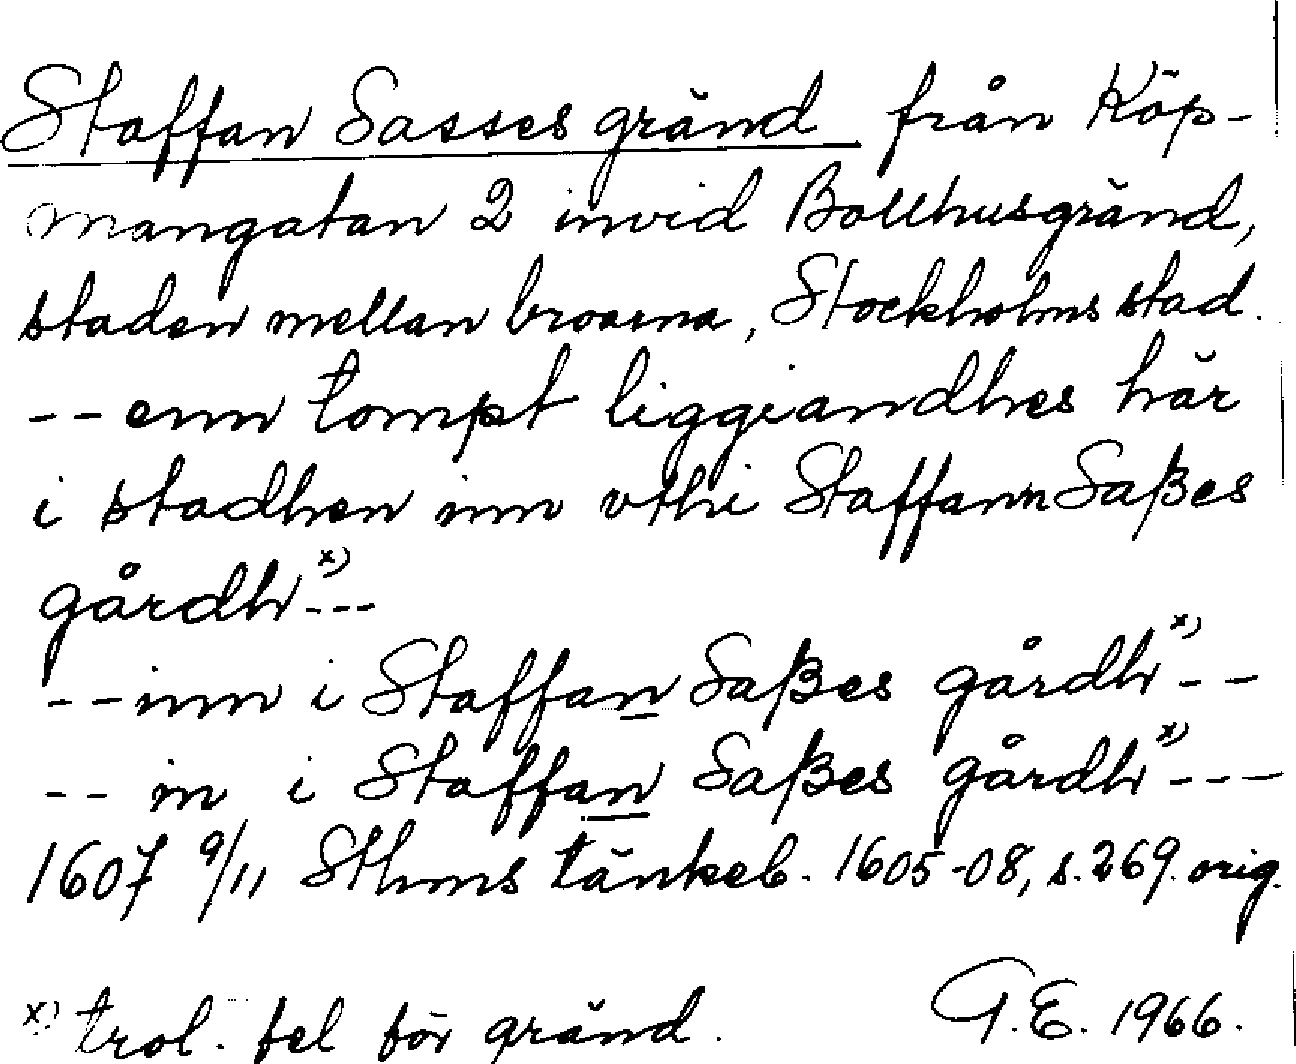 Staffan Sasses gränd från Köp-
mangatan 2 invid Bollhusgränd,
staden mellan broarna, Stockholms stad.
-- enn tompt liggiandhes här
i stadhen inn vthi Staffann Saßes
gårdh x) ---
-- inn i Staffan Saßes gårdh x) --
-- in i Staffan Saßes gårdh x) ---
1607 9/11 Sthms tänkeb. 1605-08, s. 269. orig.
x) trol. fel för gränd. G.E. 1966.